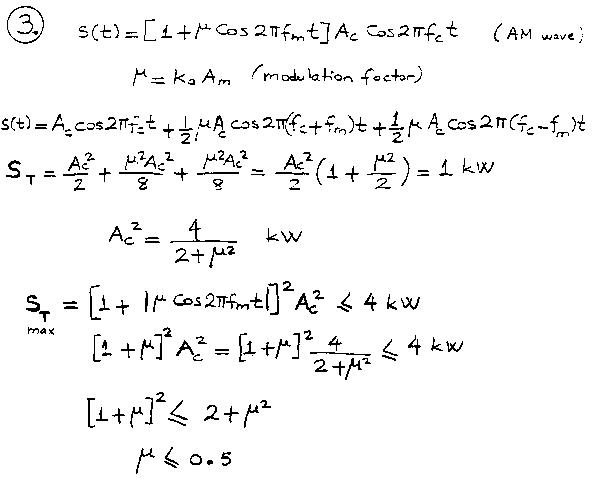 3.
s(t) = [1 + μ cos 2πfₘt] A_c cos 2πf_c t (AM wave)
μ = kₐ Aₘ (modulation factor)
s(t) = A_c cos 2πf_c t + 1/2 μ A_c cos 2π(f_c + fₘ)t + 1/2 μ A_c cos 2π(f_c − fₘ)t
S_T = A_c²/2 + μ²A_c²/8 + μ²A_c²/8 = A_c²/2 (1 + μ²/2) = 1 kW
A_c² = 4/(2 + μ²) kW
S_T max = [1 + |μ cos 2πfₘt|]² A_c² ≤ 4 kW
[1 + μ]² A_c² = [1 + μ]² 4/(2 + μ²) ≤ 4 kW
[1 + μ]² ≤ 2 + μ²
μ ≤ 0.5